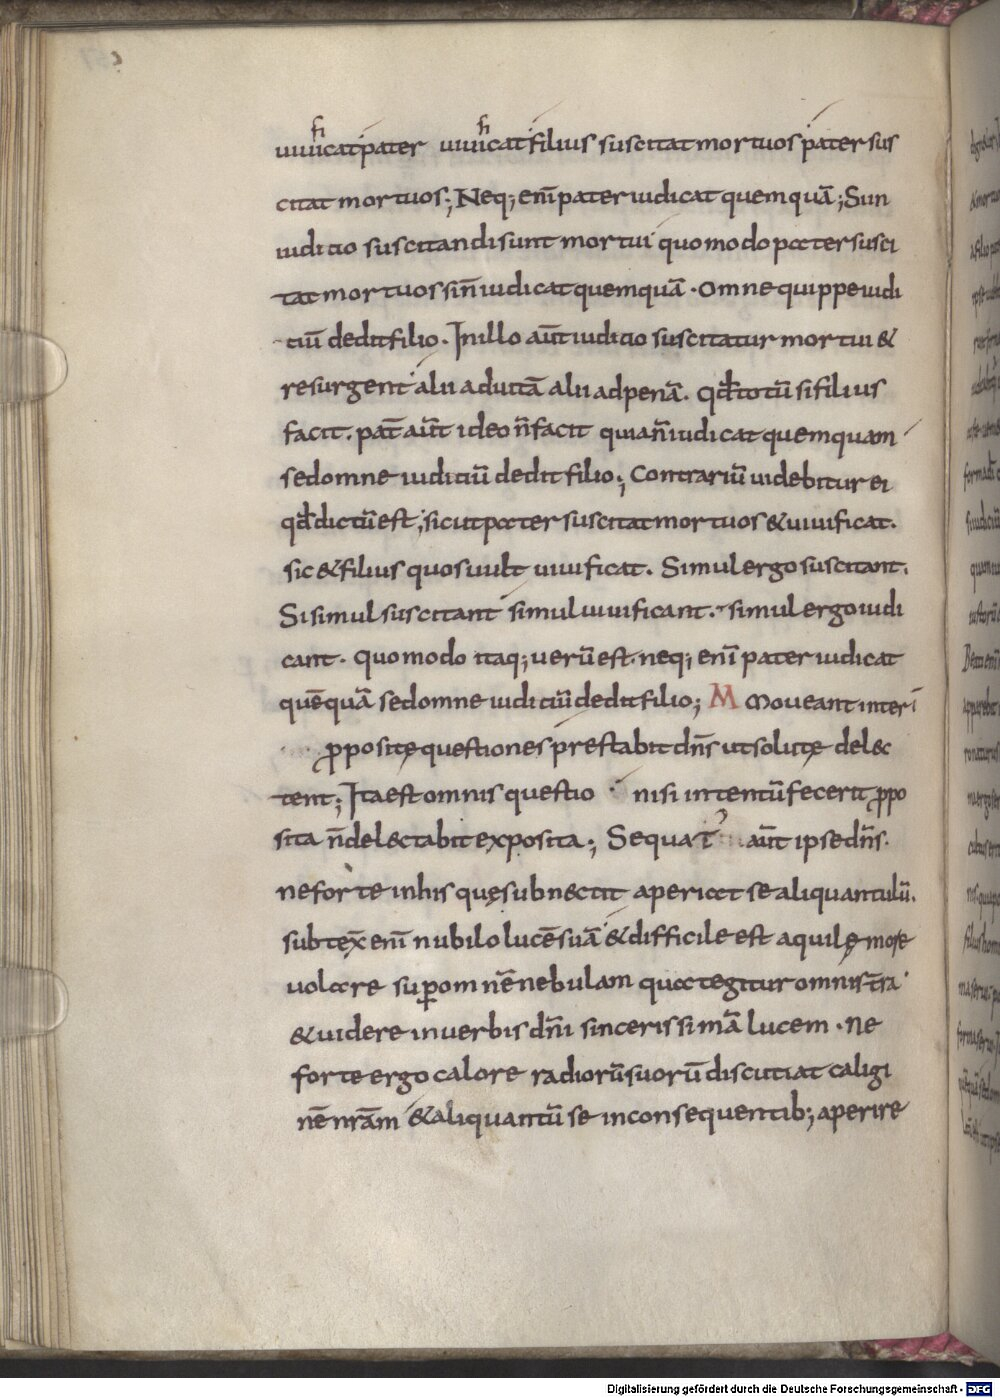 uiuificat pater uiuificat filius suscitat mortuos pater sus
citat mortuos; Neq; eni᷑ pater iudicat quemquā; Si in
iudicio suscitandi sunt mortui quomodo pater susci
tat mortuos si n̄ iudicat quemquā. Omne quippe iudi
ciū dedit filio. In illo aūt iudicio suscitatur mortui &
resurgent alii ad uitā alii ad penā. qđ totū si filius
facit. pat̄ aūt ideo n̄ facit quia n̄ iudicat quemquam
sed omne iudiciū dedit filio; Contrariū uidebitur ei
qđ dictū est; sicut pater suscitat mortuos & uiuificat.
sic & filius quos uult uiuificat. Simul ergo suscitant.
Si simul suscitant simul uiuificant. simul ergo iudi
cant. quomodo itaq; uerū est. neq; enī pater iudicat
quēquā sed omne iudiciū dedit filio; M Moueant interī
p̱positę questiones pręstabit dn̄s ut solutę delec
tent; Ita est omnis questio nisi intentū fecerit p̱po
sita n̄ delectabit exposita; Sequat᷑ aūt ipse dn̄s.
ne forte in his quę subnectit aperiat se aliquantulū.
sub tex̄ enī nubilo lucē suā & difficile est aquilę more
uolare sup̱ omnē nebulam qua tegitur omnis t̄ra
& uidere in uerbis dn̄i sincerissimā lucem. ne
forte ergo calore radiorū suorū discutiat caligi
nē nr̄am & aliquantū se in consequentib; aperire
Digitalisierung gefördert durch die Deutsche Forschungsgemeinschaft - DFG